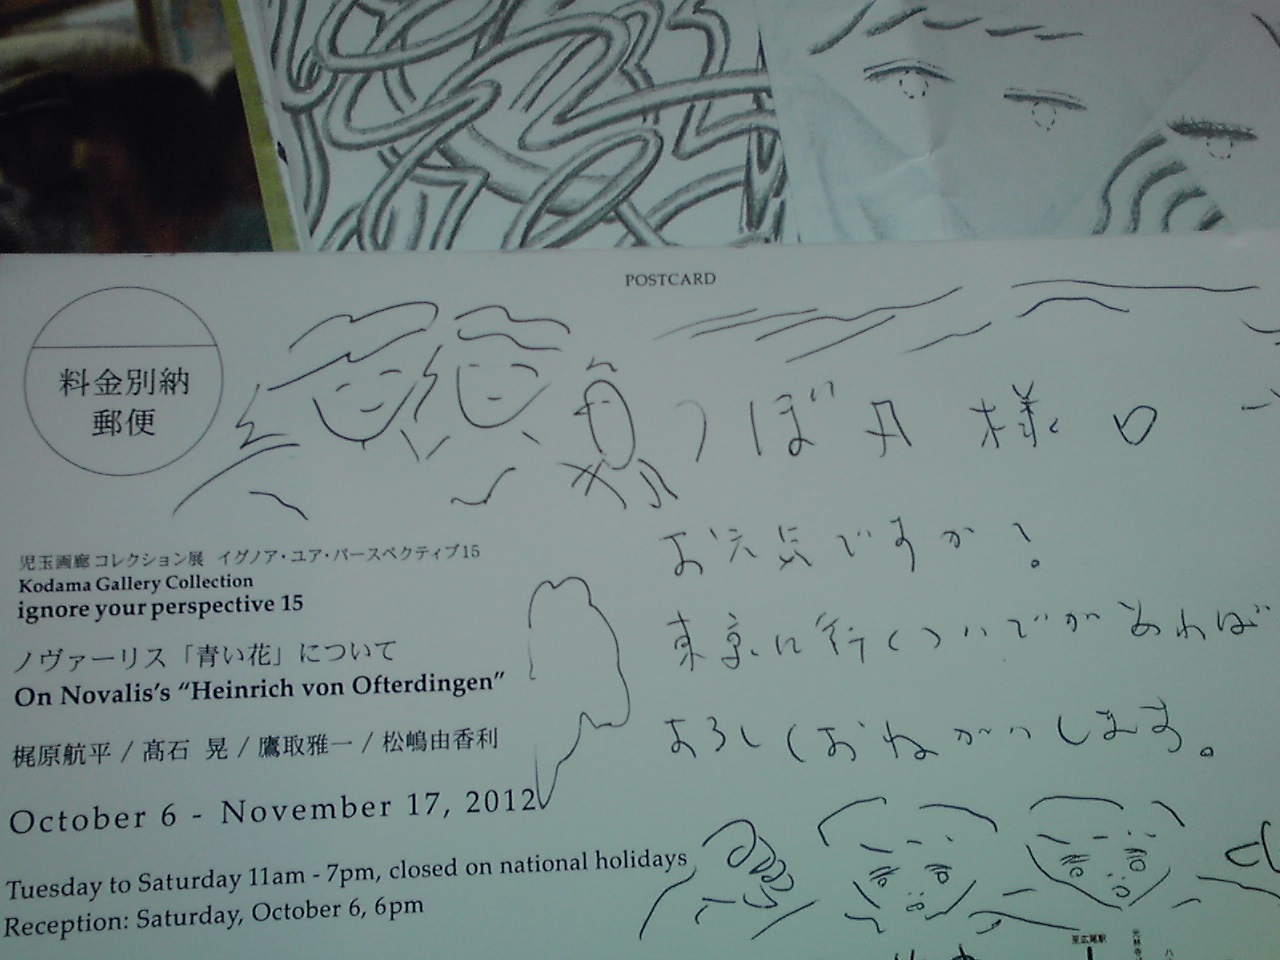 POSTCARD
料金別納
郵便
つぼ井 様
お元気ですか!
東京に行くついでがあれば
よろしくおねがいします。
児玉画廊 コレクション展 イグノア・ユア・パースペクティブ15
Kodama Gallery Collection
ignore your perspective 15
ノヴァーリス「青い花」について
On Novalis's “Heinrich von Ofterdingen”
梶原航平 / 髙石 晃 / 鷹取雅一 / 松嶋由香利
October 6 - November 17, 2012
Tuesday to Saturday 11am - 7pm, closed on national holidays
Reception: Saturday, October 6, 6pm
至広尾駅